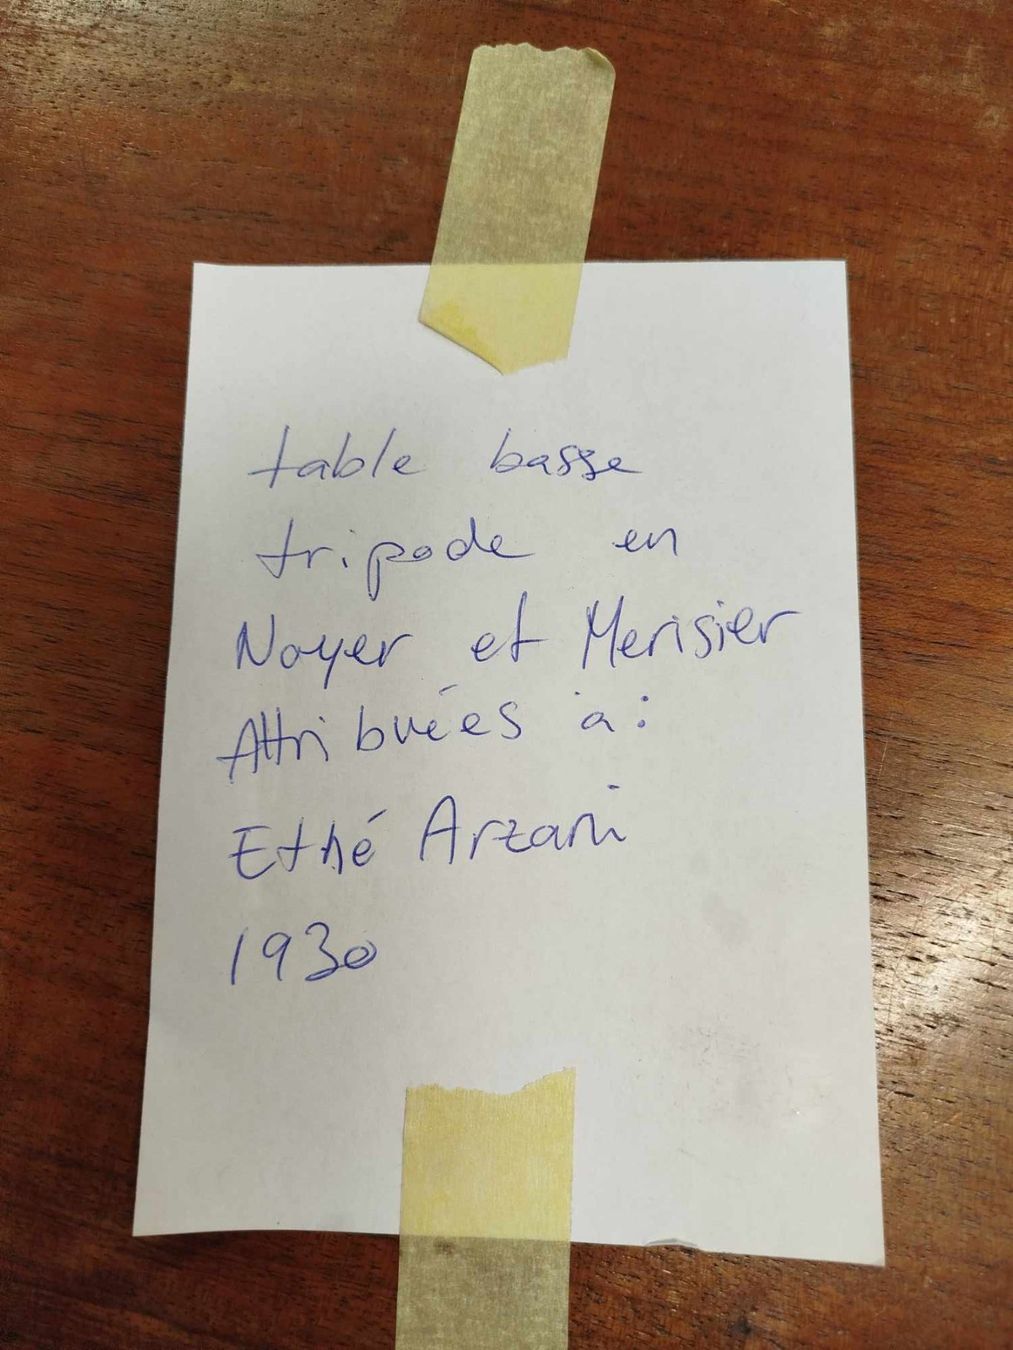 table basse
tripode en
Noyer et Merisier
Attribuées à:
Ethé Arzani
1930